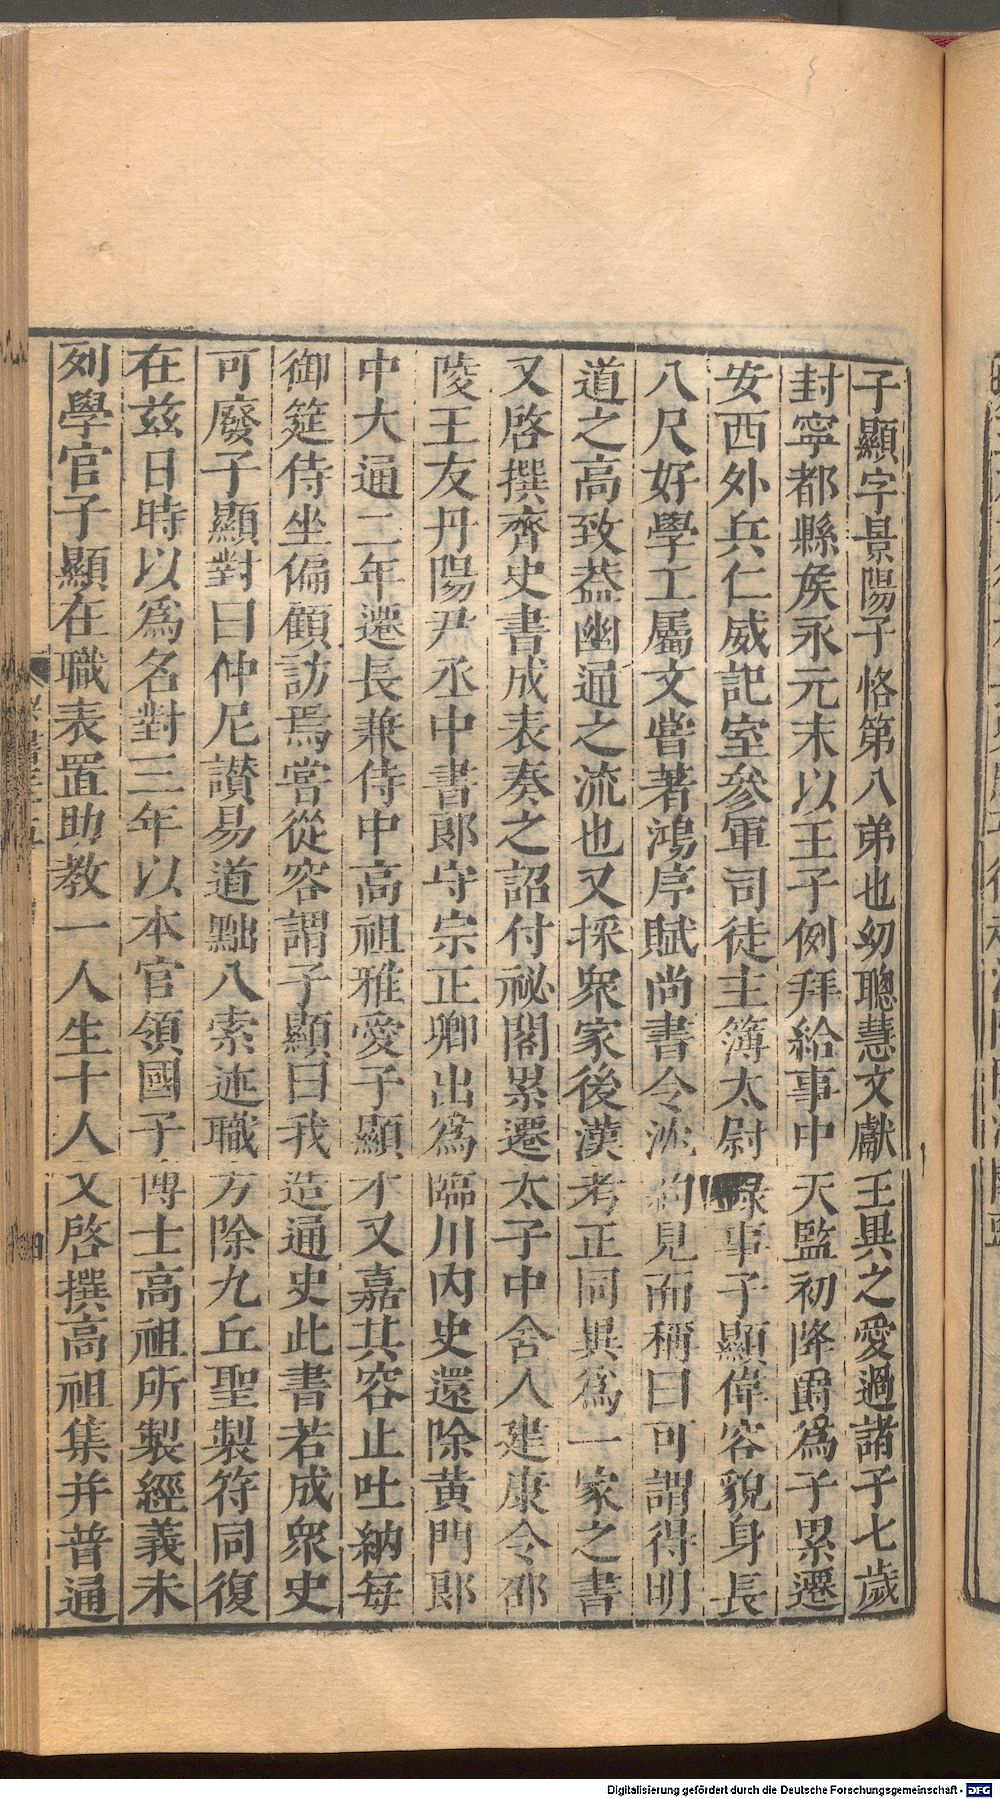 子顯字景陽子恪第八弟也幼聰慧文獻王異之愛過諸子七歲
封寧都縣矦永元末以王子例拜給事中天監初降爵爲子累遷
安西外兵仁威記室參軍司徒主簿太尉錄事子顯偉容貌身長
八尺好學工屬文嘗著鴻序賦尚書令沈約見而稱曰可謂得明
道之高致葢幽通之流也又採衆家後漢考正同異爲一家之書
又啓撰齊史書成表奏之詔付祕閣累遷太子中舍人建康令邵
陵王友丹陽尹丞中書郎守宗正卿出爲臨川內史還除黃門郎
中大通二年遷長兼侍中高祖雅愛子顯才又嘉其容止吐納每
御筵侍坐偏顧訪焉嘗從容謂子顯曰我造通史此書若成衆史
可廢子顯對曰仲尼讃易道黜八索述職方除九丘聖製符同復
在兹日時以爲名對三年以本官領國子博士高祖所製經義未
列學官子顯在職表置助教一人生十人又啓撰高祖集并普通
四
Digitalisierung gefördert durch die Deutsche Forschungsgemeinschaft - DFG